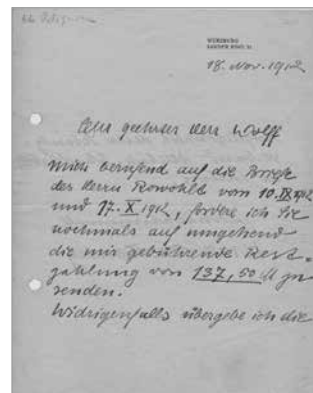 WÜRZBURG
18. Nov. 1912
Sehr geehrter Herr Wolff
Mich berufend auf die Briefe
des Herrn Rowohlt vom 10. IX 1912
und 17. X 1912, fordere ich Sie
nochmals auf umgehend
die mir gebührende Rest-
zahlung von 137,50 M zu
senden.
Widrigenfalls übergebe ich die